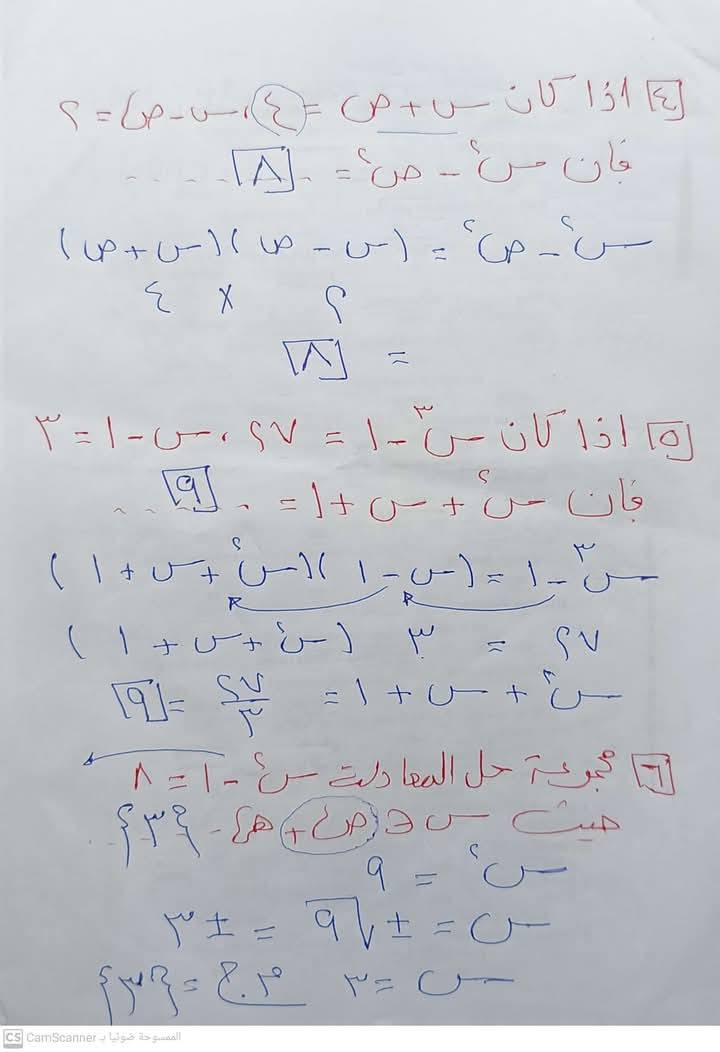 [٤] اذا كان س + ص = ٤ ، س - ص = ٢
فان س٢ - ص٢ = ... [٨] ....
س٢ - ص٢ = (س - ص)(س + ص)
٢ × ٤
= [٨]
[٥] اذا كان س٣ - ١ = ٢٧ ، س - ١ = ٣
فان س٢ + س + ١ = .. [٩] ....
س٣ - ١ = (س - ١)(س٢ + س + ١)
٢٧ = ٣ (س٢ + س + ١)
س٢ + س + ١ = ٢٧/٣ = [٩]
[٦] مجموعة حل المعادلة س٢ - ١ = ٨
حيث س ∈ ص+ هي .. {٣} ..
س٢ = ٩
س = ± √٩ = ± ٣
س = ٣ م.ح = {٣}
CS CamScanner الممسوحة ضوئيا بـ